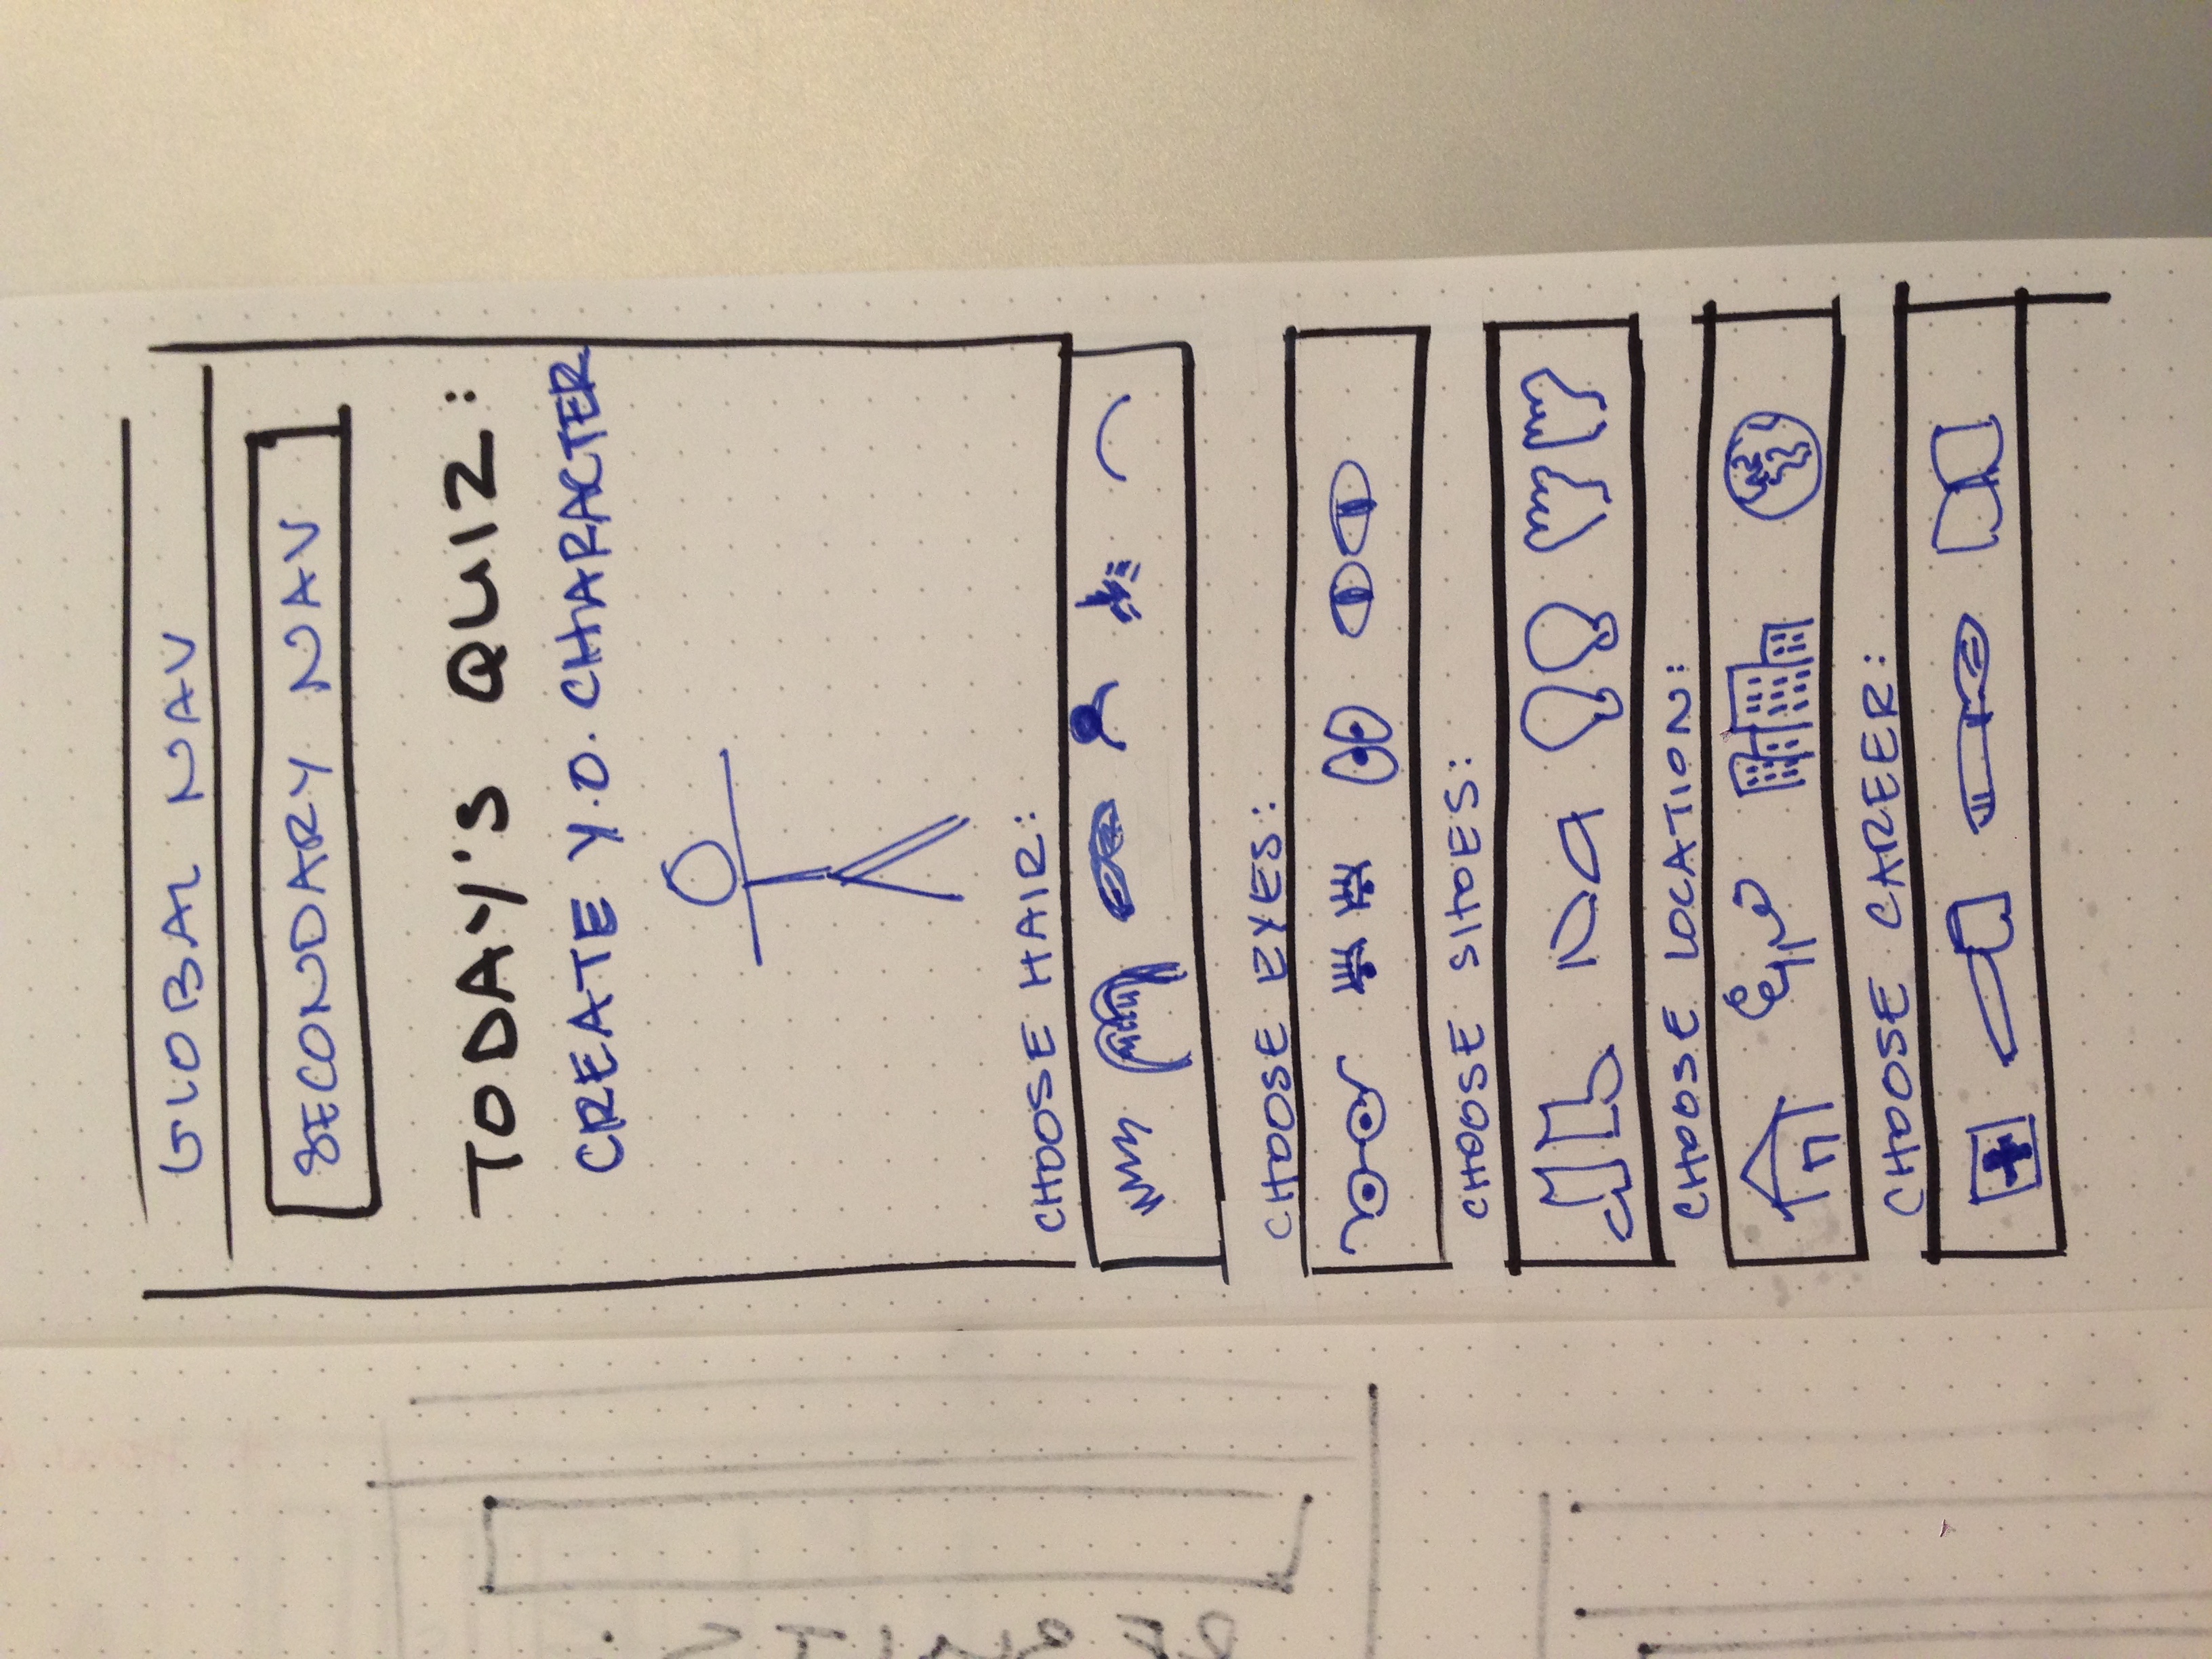 GLOBAL NAV
SECONDARY NAV
TODAY'S QUIZ:
CREATE Y.O. CHARACTER
CHOOSE HAIR:
CHOOSE EYES:
CHOOSE SHOES:
CHOOSE LOCATION:
CHOOSE CAREER: